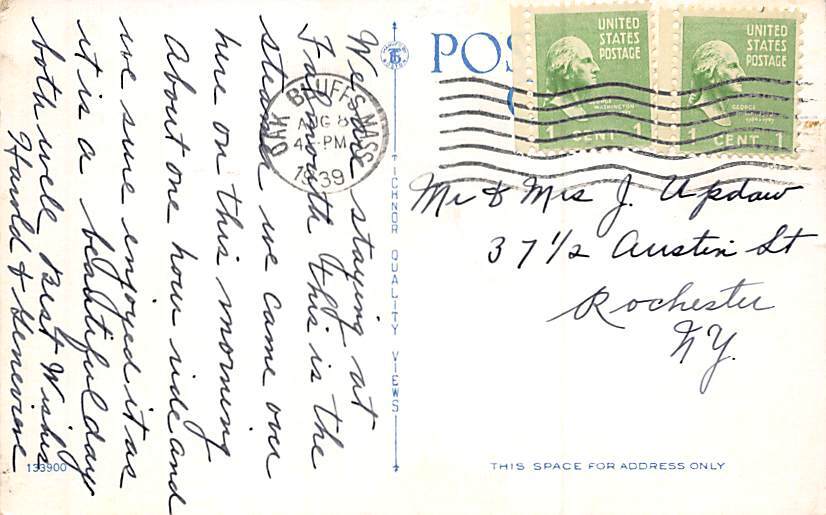 We are staying at
Falmouth This is the
steamer we came over
here on this morning
About one hour ride and
we sure enjoyed it as
it is a beautiful day
both well Best Wishes
Harold & Genevieve
133900
TICHNOR QUALITY VIEWS
POS
OAK BLUFFS MASS.
AUG 8
4 PM
1939
UNITED
STATES
POSTAGE
GEORGE
WASHINGTON
1 CENT 1
UNITED
STATES
POSTAGE
GEORGE
1 CENT 1
Mr & Mrs J. Updaw
37 1/2 Austin St
Rochester
N.Y.
THIS SPACE FOR ADDRESS ONLY